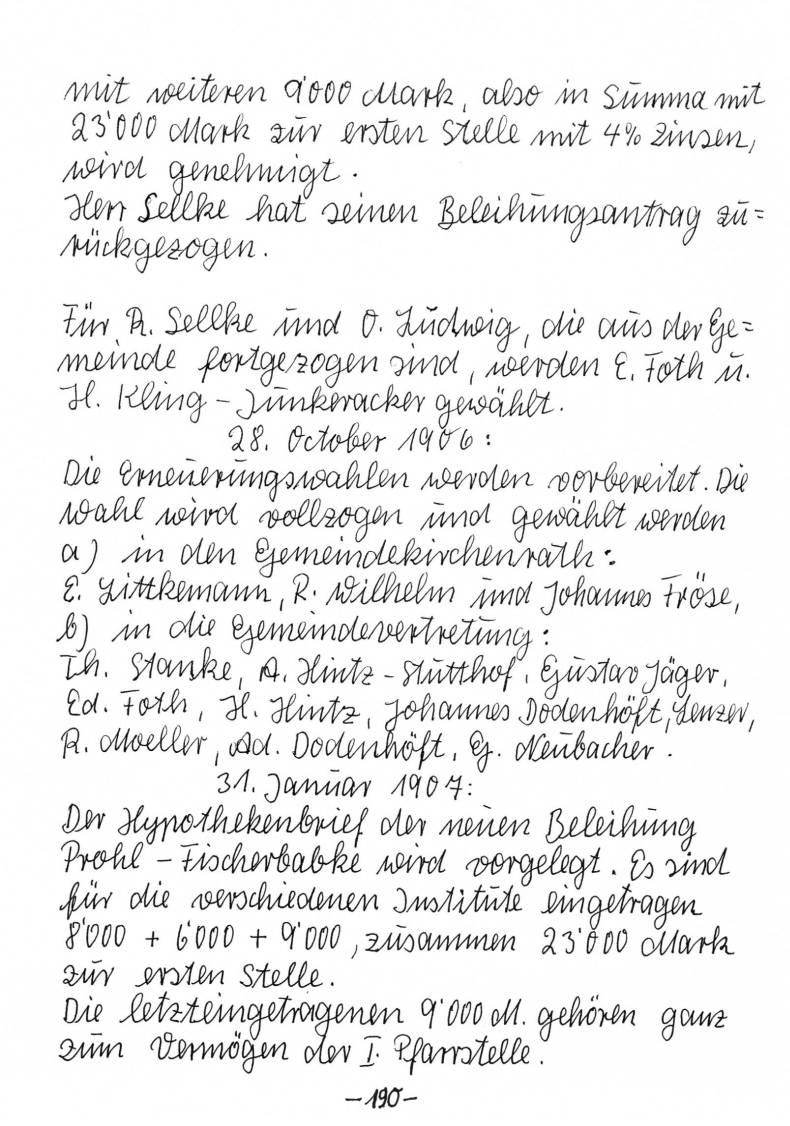 mit weiteren 9'000 Mark, also in Summa mit
23'000 Mark zur ersten Stelle mit 4% Zinsen,
wird genehmigt.
Herr Sellke hat seinen Beleihungsantrag zu=
rückgezogen.
Für R. Sellke und O. Ludwig, die aus der Ge=
meinde fortgezogen sind, werden E. Foth u.
H. Kling - Junkeracker gewählt.
28. October 1906:
Die Erneuerungswahlen werden vorbereitet. Die
Wahl wird vollzogen und gewählt werden
a) in den Gemeindekirchenrath:
E. Littkemann, R. Wilhelm und Johannes Fröse,
b) in die Gemeindevertretung:
Th. Stanke, A. Hintz - Stutthof, Gustav Jäger,
Ed. Foth, H. Hintz, Johannes Dodenhöft, Lenzer,
R. Moeller, Ad. Dodenhöft, G. Neubacher.
31. Januar 1907:
Der Hypothekenbrief der neuen Beleihung
Prohl - Fischerbabke wird vorgelegt. Es sind
für die verschiedenen Institute eingetragen
8'000 + 6'000 + 9'000, zusammen 23'000 Mark
zur ersten Stelle.
Die letzteingetragenen 9'000 M. gehören ganz
zum Vermögen der I. Pfarrstelle.
-190-